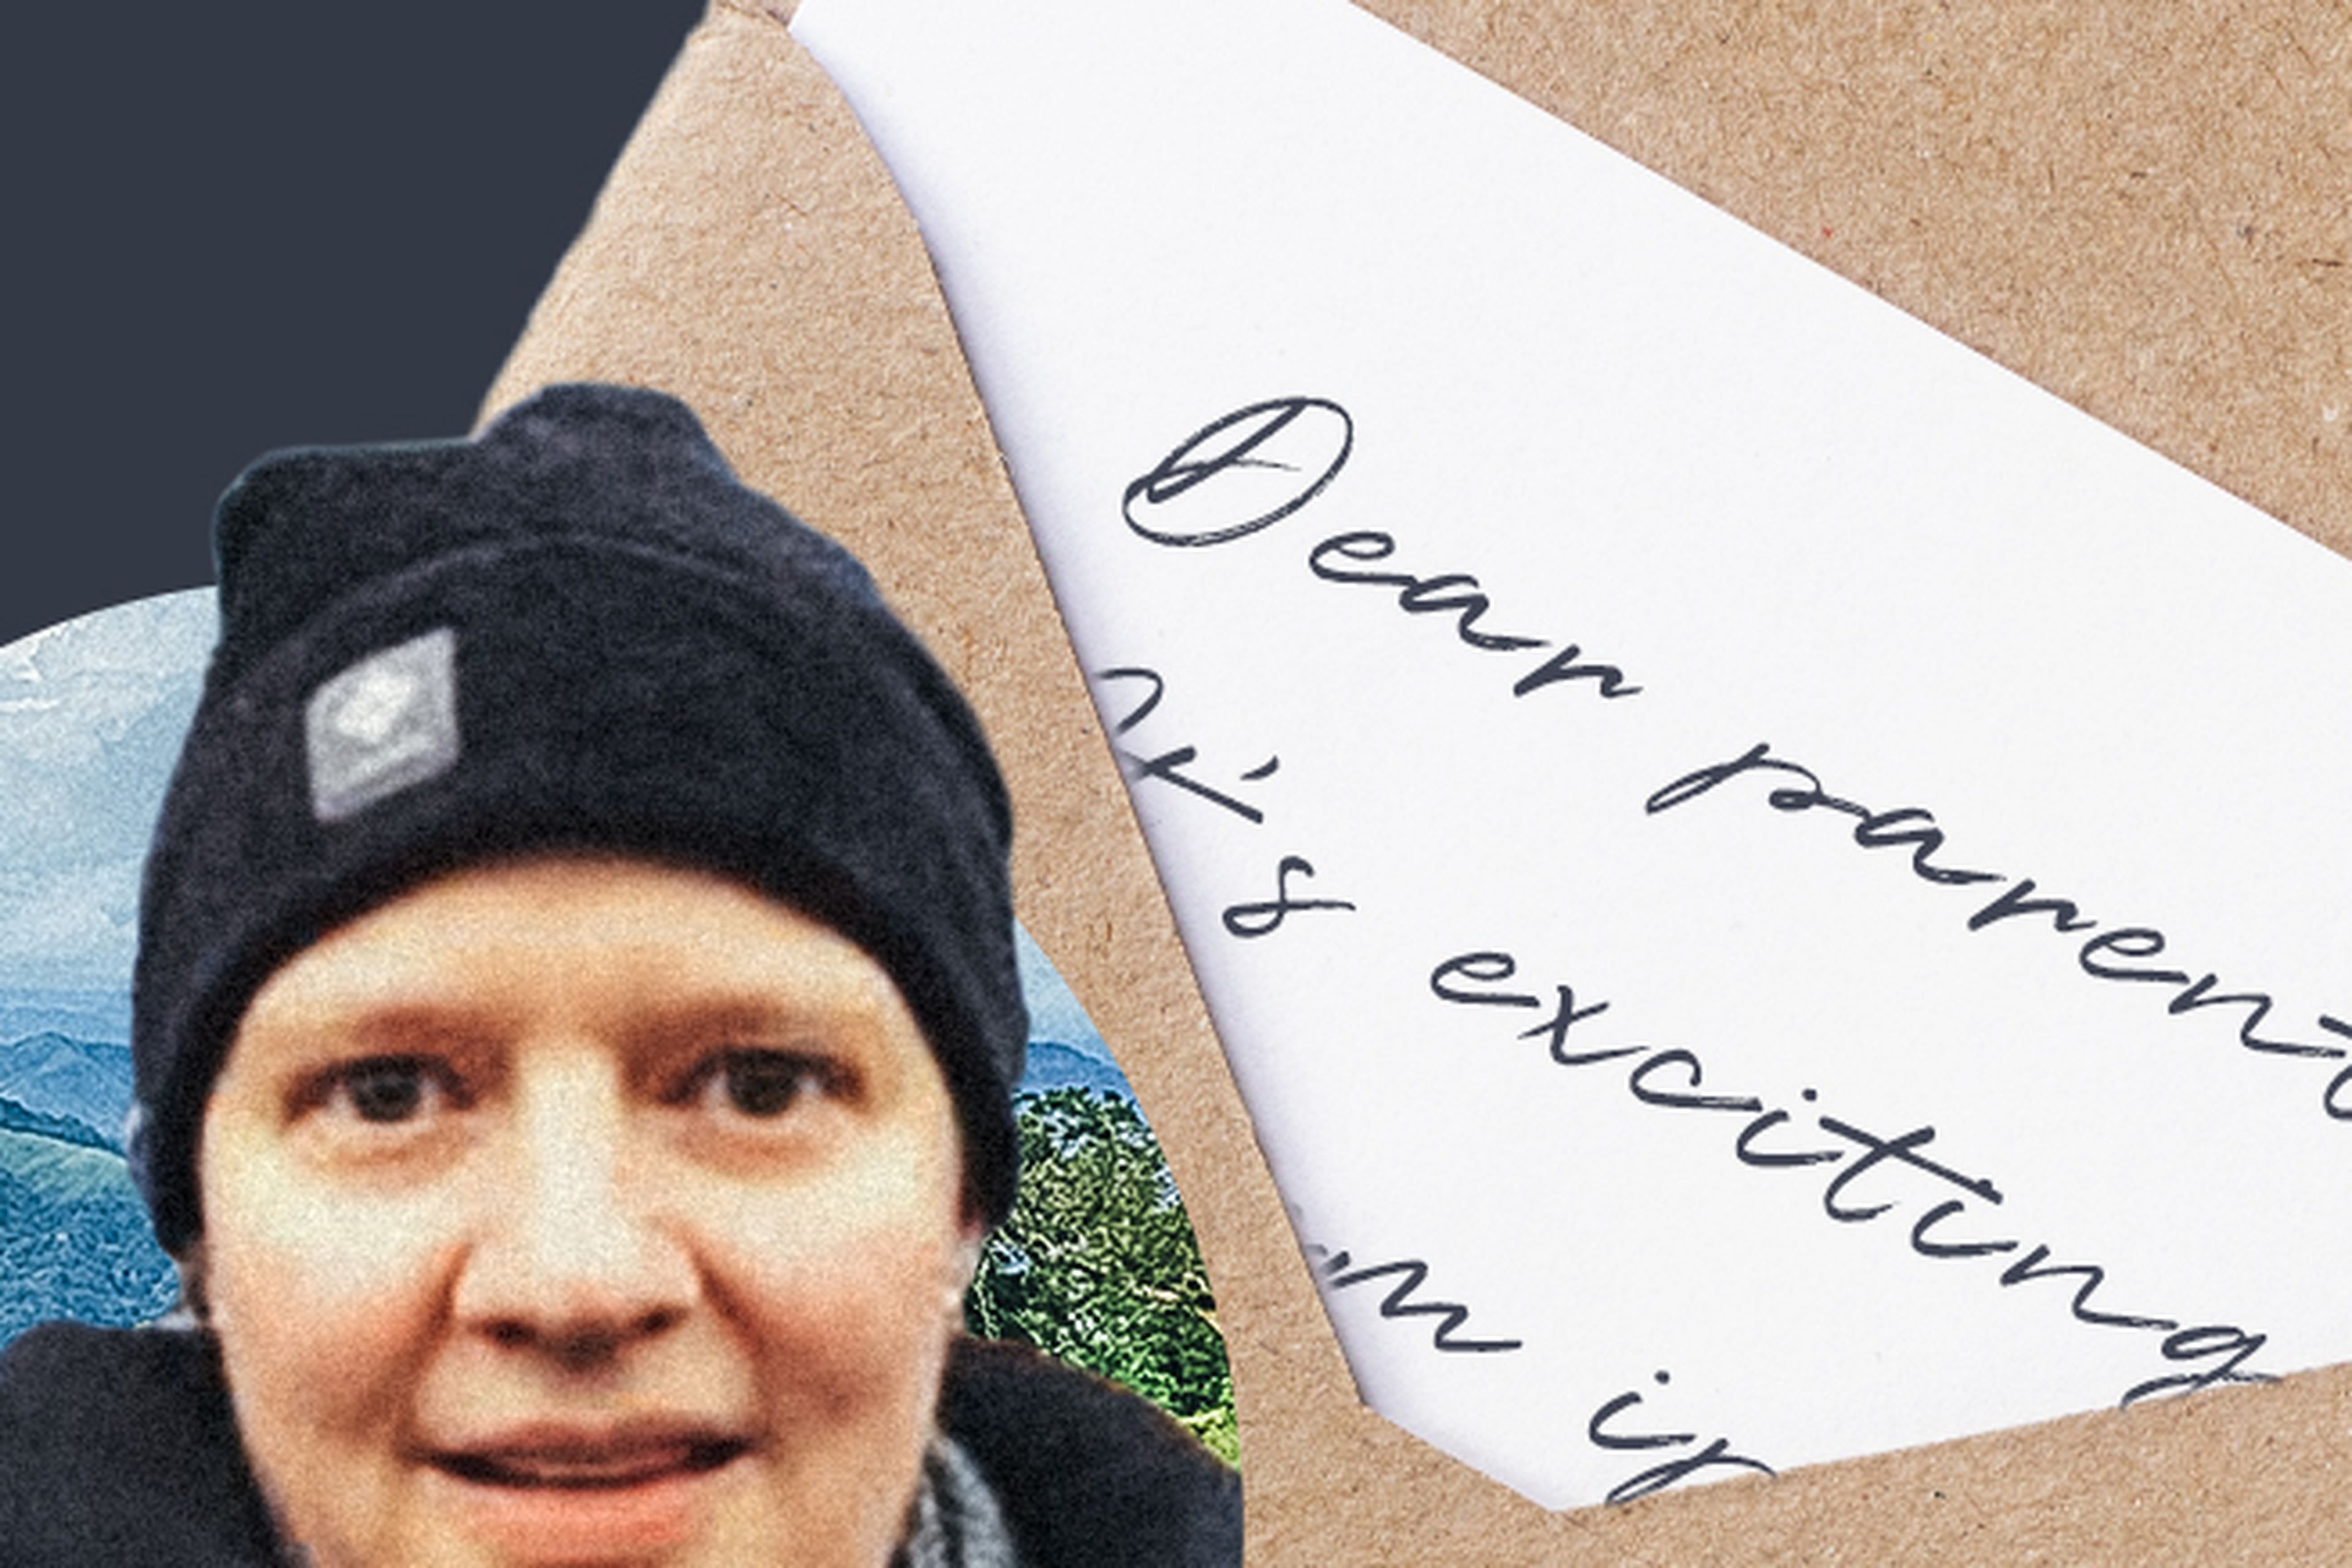 Dear parent
It's exciting
m if